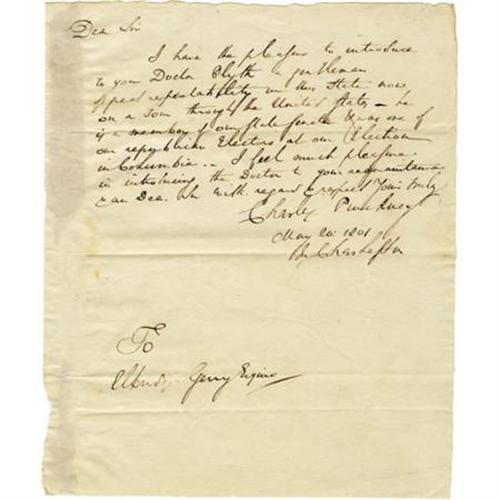 Dear Sir
I have the pleasure to introduce
to you Doctor Blyth a gentleman
of great respectability in this State now
on a Tour through the United States – he
is a member of our State Senate & was one of
our republican Electors at our Election
in Columbia. – I feel much pleasure
in introducing the Doctor to your acquaintance
& am Dear Sir with regard & respect Yours truly
Charles Pinckney
May 20: 1801
In Charleston
To
Elbridge Gerry Esquire